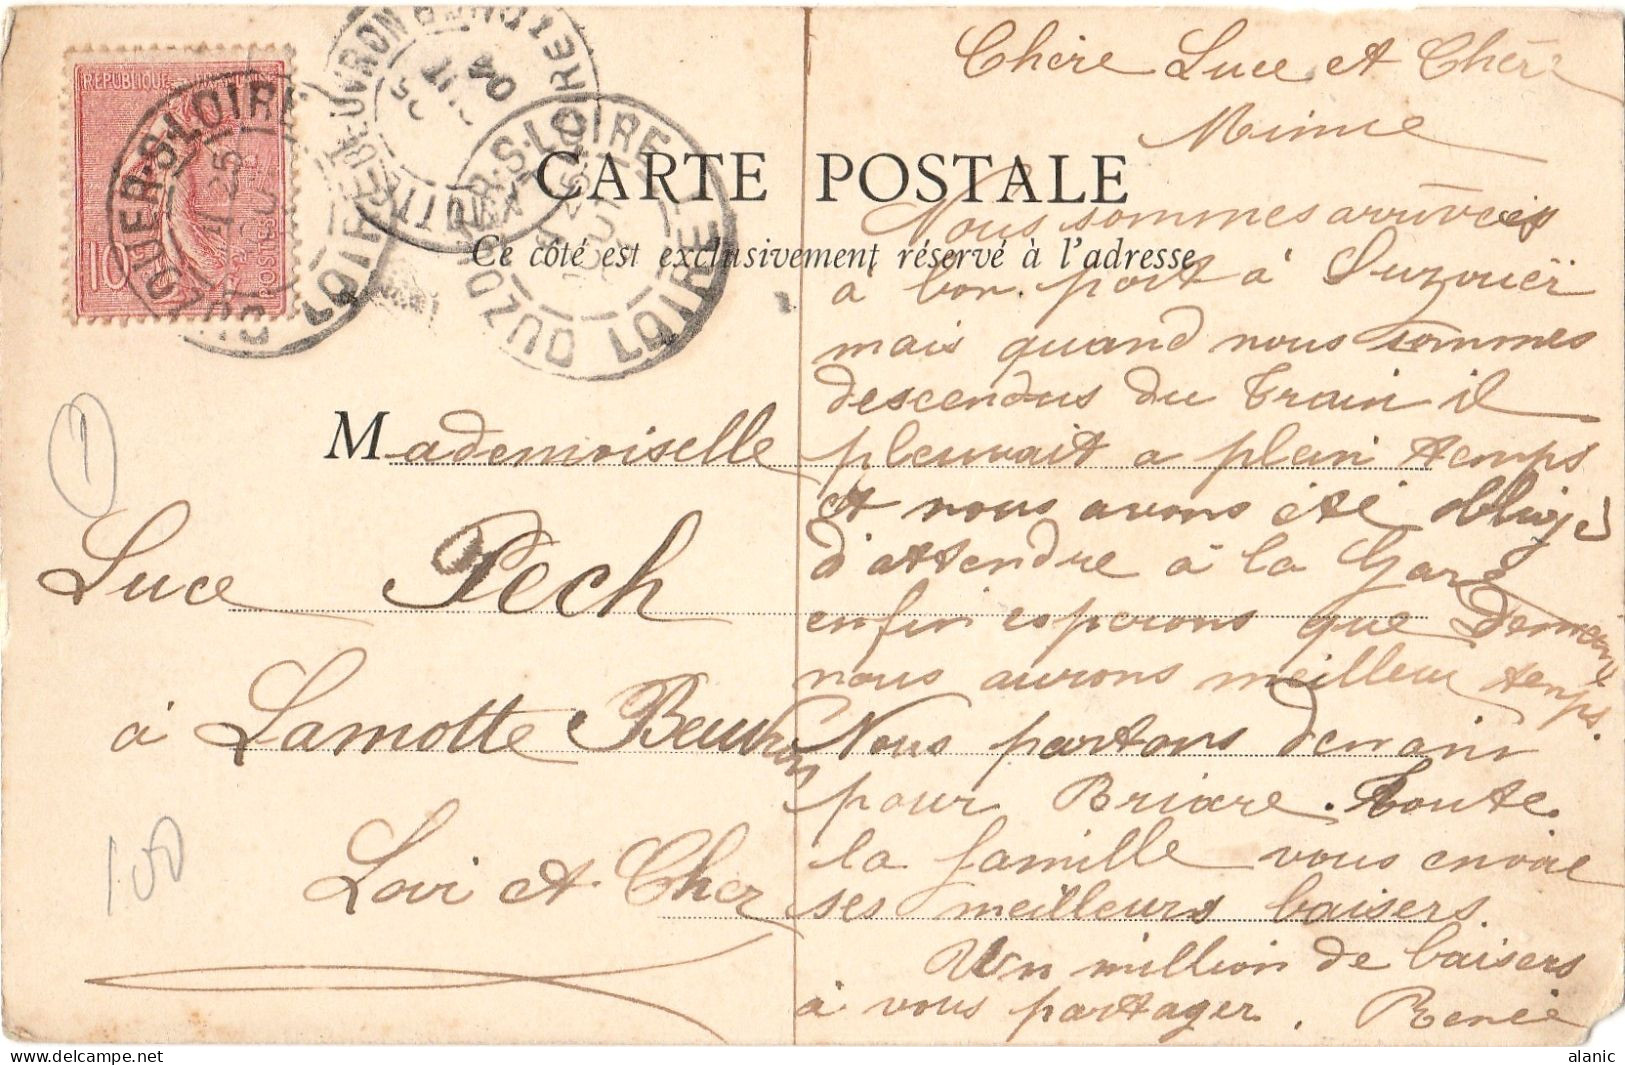 REPUBLIQUE FRANÇAISE
10
POSTES
OUZOUER-S-LOIRE
LOIRET
25
LAMOTTE-BEUVRON
LOIR-ET-CHER
25
AOUT
04
OUZOUER-S-LOIRE
LOIRET
CARTE POSTALE
Ce côté est exclusivement réservé à l'adresse
Mademoiselle
Luce Pech
à Lamotte Beuvron
Loir et Cher
1
100
Chère Luce et Chère
Mimie
Nous sommes arrivées
à bon port à Ouzouër
mais quand nous sommes
descendus du train il
pleuvait a plein temps
et nous avons été obligés
d'attendre à la Gare
enfin esperons que demain
nous aurons meilleur temps.
Nous partons demain
pour Briare. toute
la famille vous envoie
ses meilleurs baisers.
Un million de baisers
à vous partager. Renée
alanic